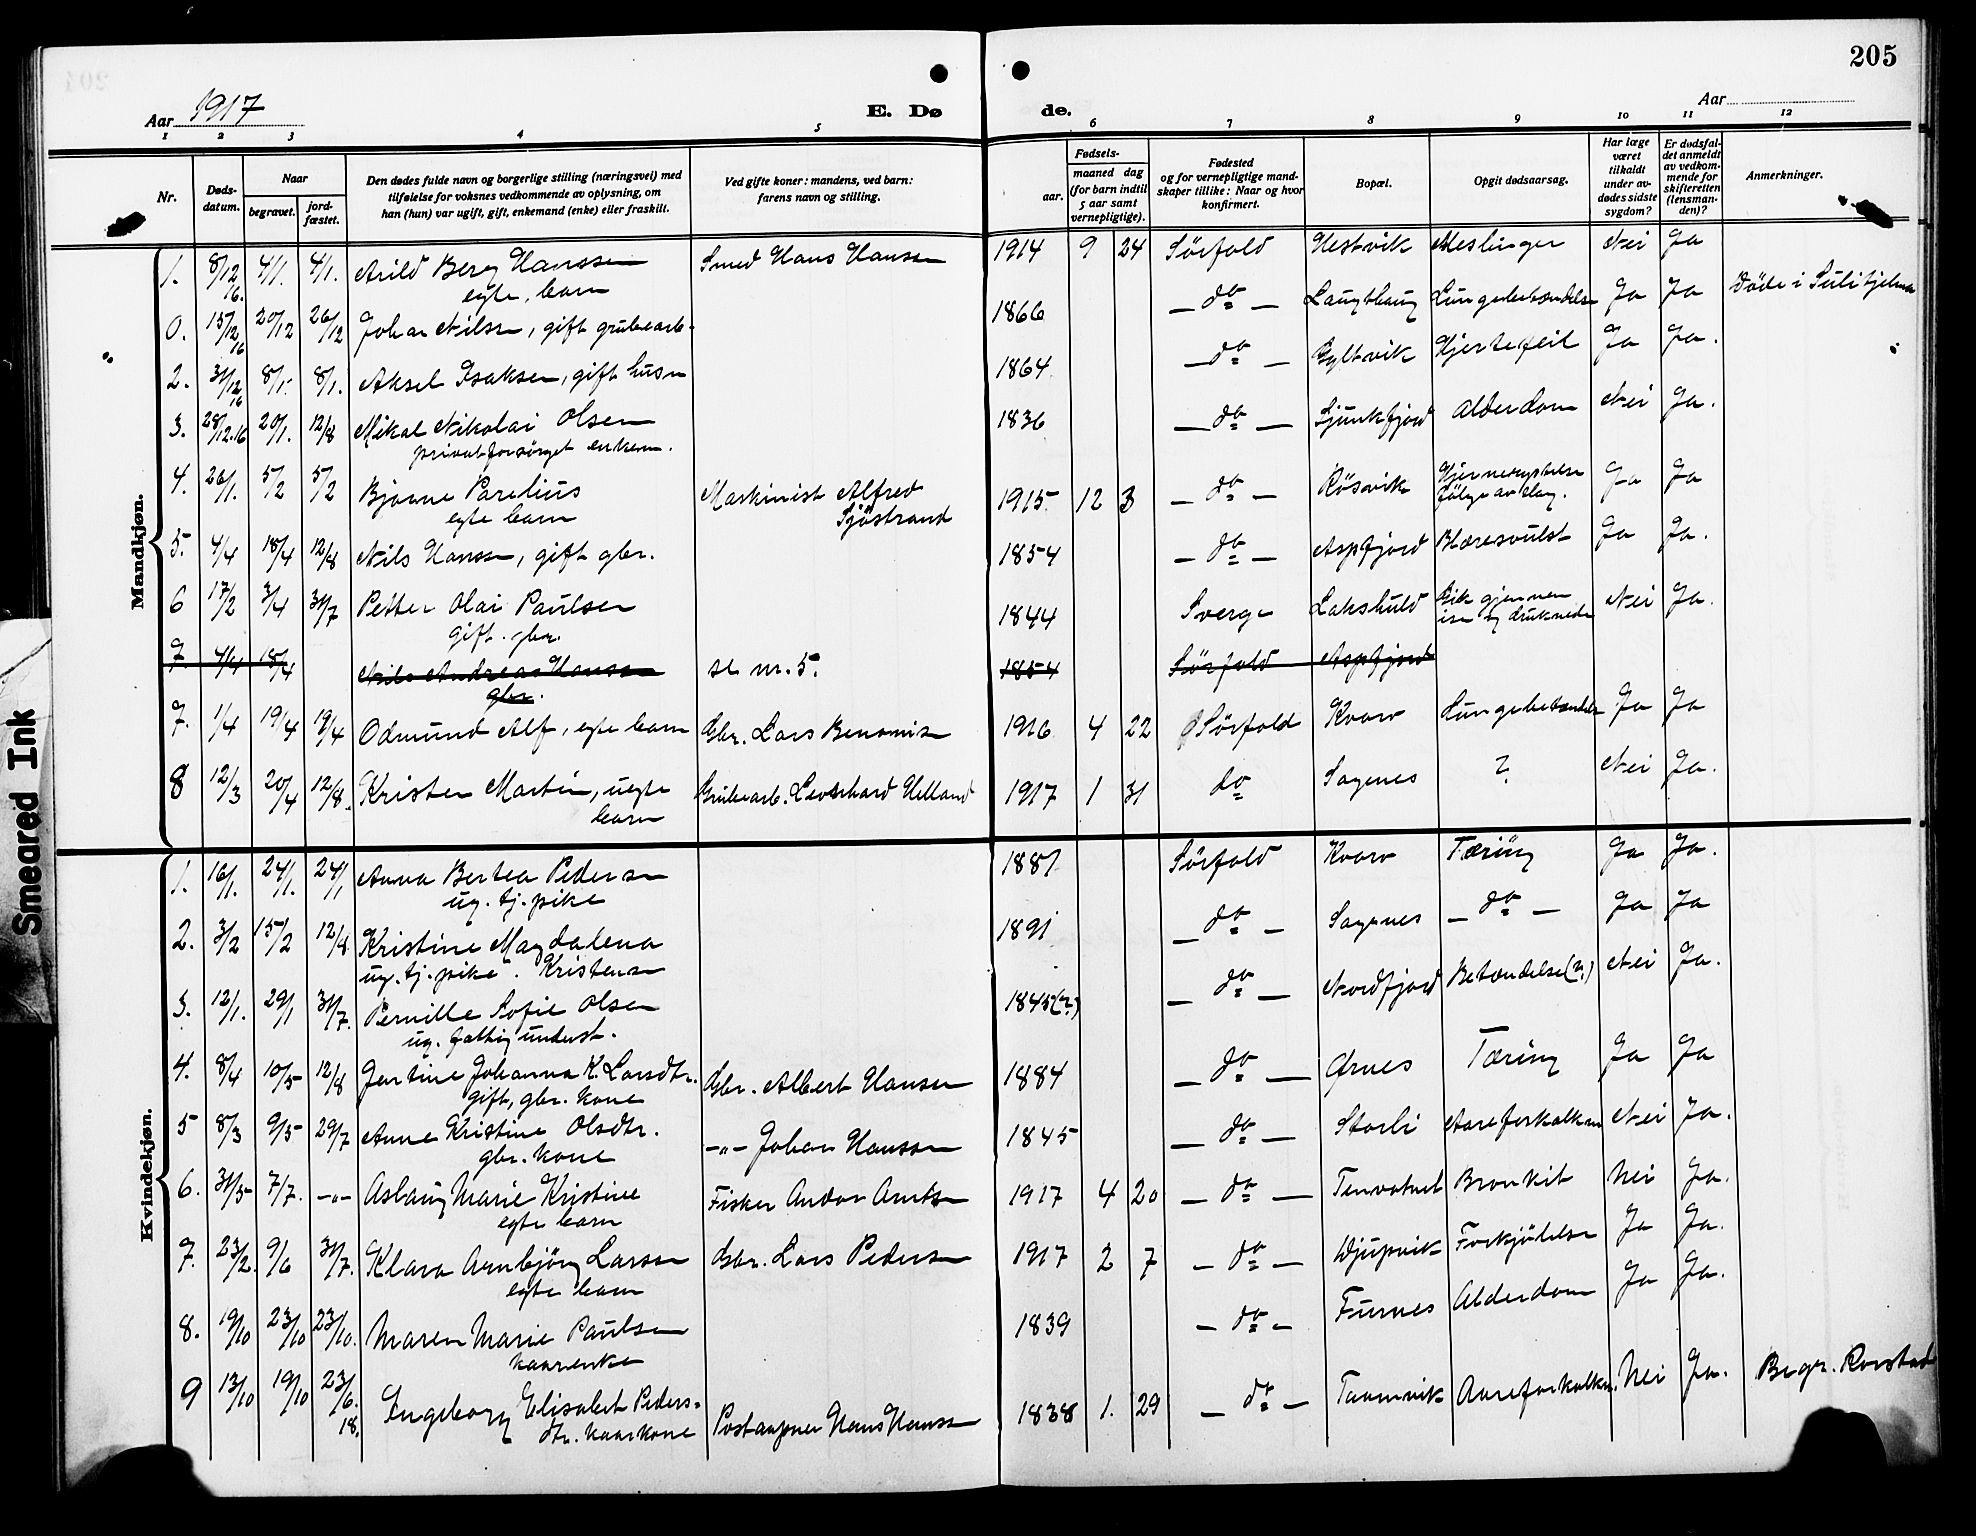 205
Aar 1917
E. Dø
de.
Aar
1 2 3 4 5 6 7 8 9 10 11 12
Nr.
Døds-
datum.
Naar
begravet.
jord-
fæstet.
Den dødes fulde navn og borgerlige stilling (næringsvei) med
tilføielse for voksnes vedkommende av oplysning, om
han (hun) var ugift, gift, enkemand (enke) eller fraskilt.
Ved gifte koner: mandens, ved barn:
farens navn og stilling.
Fødsels-
aar.
maaned dag
(for barn indtil
5 aar samt
vernepligtige).
Fødested
og for vernepligtige mand-
skaper tillike: Naar og hvor
konfirmert.
Bopæl.
Opgit dødsaarsag.
Har læge
været
tilkaldt
under av-
dødes sidste
sygdom?
Er dødsfal-
det anmeldt
av vedkom-
mende for
skifteretten
(lensman-
den)?
Anmerkninger.
Mandkjøn.
1. 8/12 16. 4/1. 4/1. Arild Berg Hanssen Smed Hans Hansen 1914 9 24 Sørfold Hestvik Meslinger Nei Ja
egte, barn
0. 15/12 16 20/12 26/12 Johan Nilssen, gift grubearb. 1866 — do — Laugthaug Lungebetændelse Ja Ja Döde i Sulitjelma
2. 31/12 16 8/1. 8/1. Aksel Isaksen, gift husm 1864 — do — Gyltvik Hjertefeil Ja Ja.
3. 28/12.16 20/1. 12/8 Mikal Nikolai Olsen 1836 — do — Ljunkfjord Alderdom Nei Ja.
privatforsörget enkem.
4. 26/1. 5/2 5/2 Bjarne Parelius Maskinist Alfred 1915 12 3 — do — Rösvik Hjernerystelse Ja Ja
egte barn Sjöstrand fölge av slag.
5. 4/4 18/4 12/8 Nils Hansen, gift gbr. 1854 — do — Aspfjord Blæresvulst Ja Ja.
6 17/2 3/4 31/7 Petter Olai Paulsen 1844 Sverge Lakshuld Gik gjennem Nei Ja.
gift. gbr. isen og druknede
7. 4/4 18/4 Nils Andreas Hansen se nr. 5. 1854 Sörfold Aspfjord
gbr.
7. 1/4 19/4 19/4 Odmund Alf, egte barn Gbr. Lars Benonisen 1916 4 22 Sörfold Kvarv Lungebetændelse Ja Ja
8 12/3 20/4 12/8. Kristen Martin, uegte Grubearb. Leonhard Helland 1917 1 31 do Sagenes ? Nei Ja.
barn
Kvindekjøn.
1. 16/1. 24/1. 24/1 Anna Bertea Pedersen 1887 Sörfold Kvarv Tæring Ja Ja.
ug. tj. pike
2. 3/2 15/2 12/8 Kristine Magdalena 1891 — do — Sagenes — do — Ja Ja
ug. tj. pike. Kristensen
3. 12/1. 29/1 31/7. Pernille Sofie Olsen 1845 (?) — do — Nordfjord Betændelse (?) Nei Ja.
ug. fattigunderst.
4. 8/4 10/5 12/8 Jentine Johanna K. Larsdtr. Gbr. Albert Hansen 1884 — do — Ørnes Tæring Ja Ja
gift, gbr. kone
5 8/3 9/5 29/7 Anne Kristine Olsdtr. -"- Johan Hanssen 1845 — do — Storli Aareforkalkn Nei Ja.
gbr. kone
6. 31/5 7/7. -"- Aslaug Marie Kristine Fisker Andor Arntsen 1917 4 20 — do — Tenvatnet Bronkit Nei Ja.
egte barn
7. 23/2. 9/6 31/7. Klara Arnbjörg Larsen Gbr. Lars Pedersen 1917 2 7 — do — Djupvik Forkjölelse Ja Ja.
egte barn
8. 19/10 23/10 23/10. Maren Marie Paulsen 1839 — do — Furnes Alderdom Ja Ja.
kaarenke
9 13/10 19/10 23/6. 18. Ingeborg Elisabet Peders- Postaapner Hans Hansen 1838 1. 29 — do — Taamvik Aareforkalkn. Nei Ja. Begr. Rorstad
dtr. kaarkone
Smeared Ink